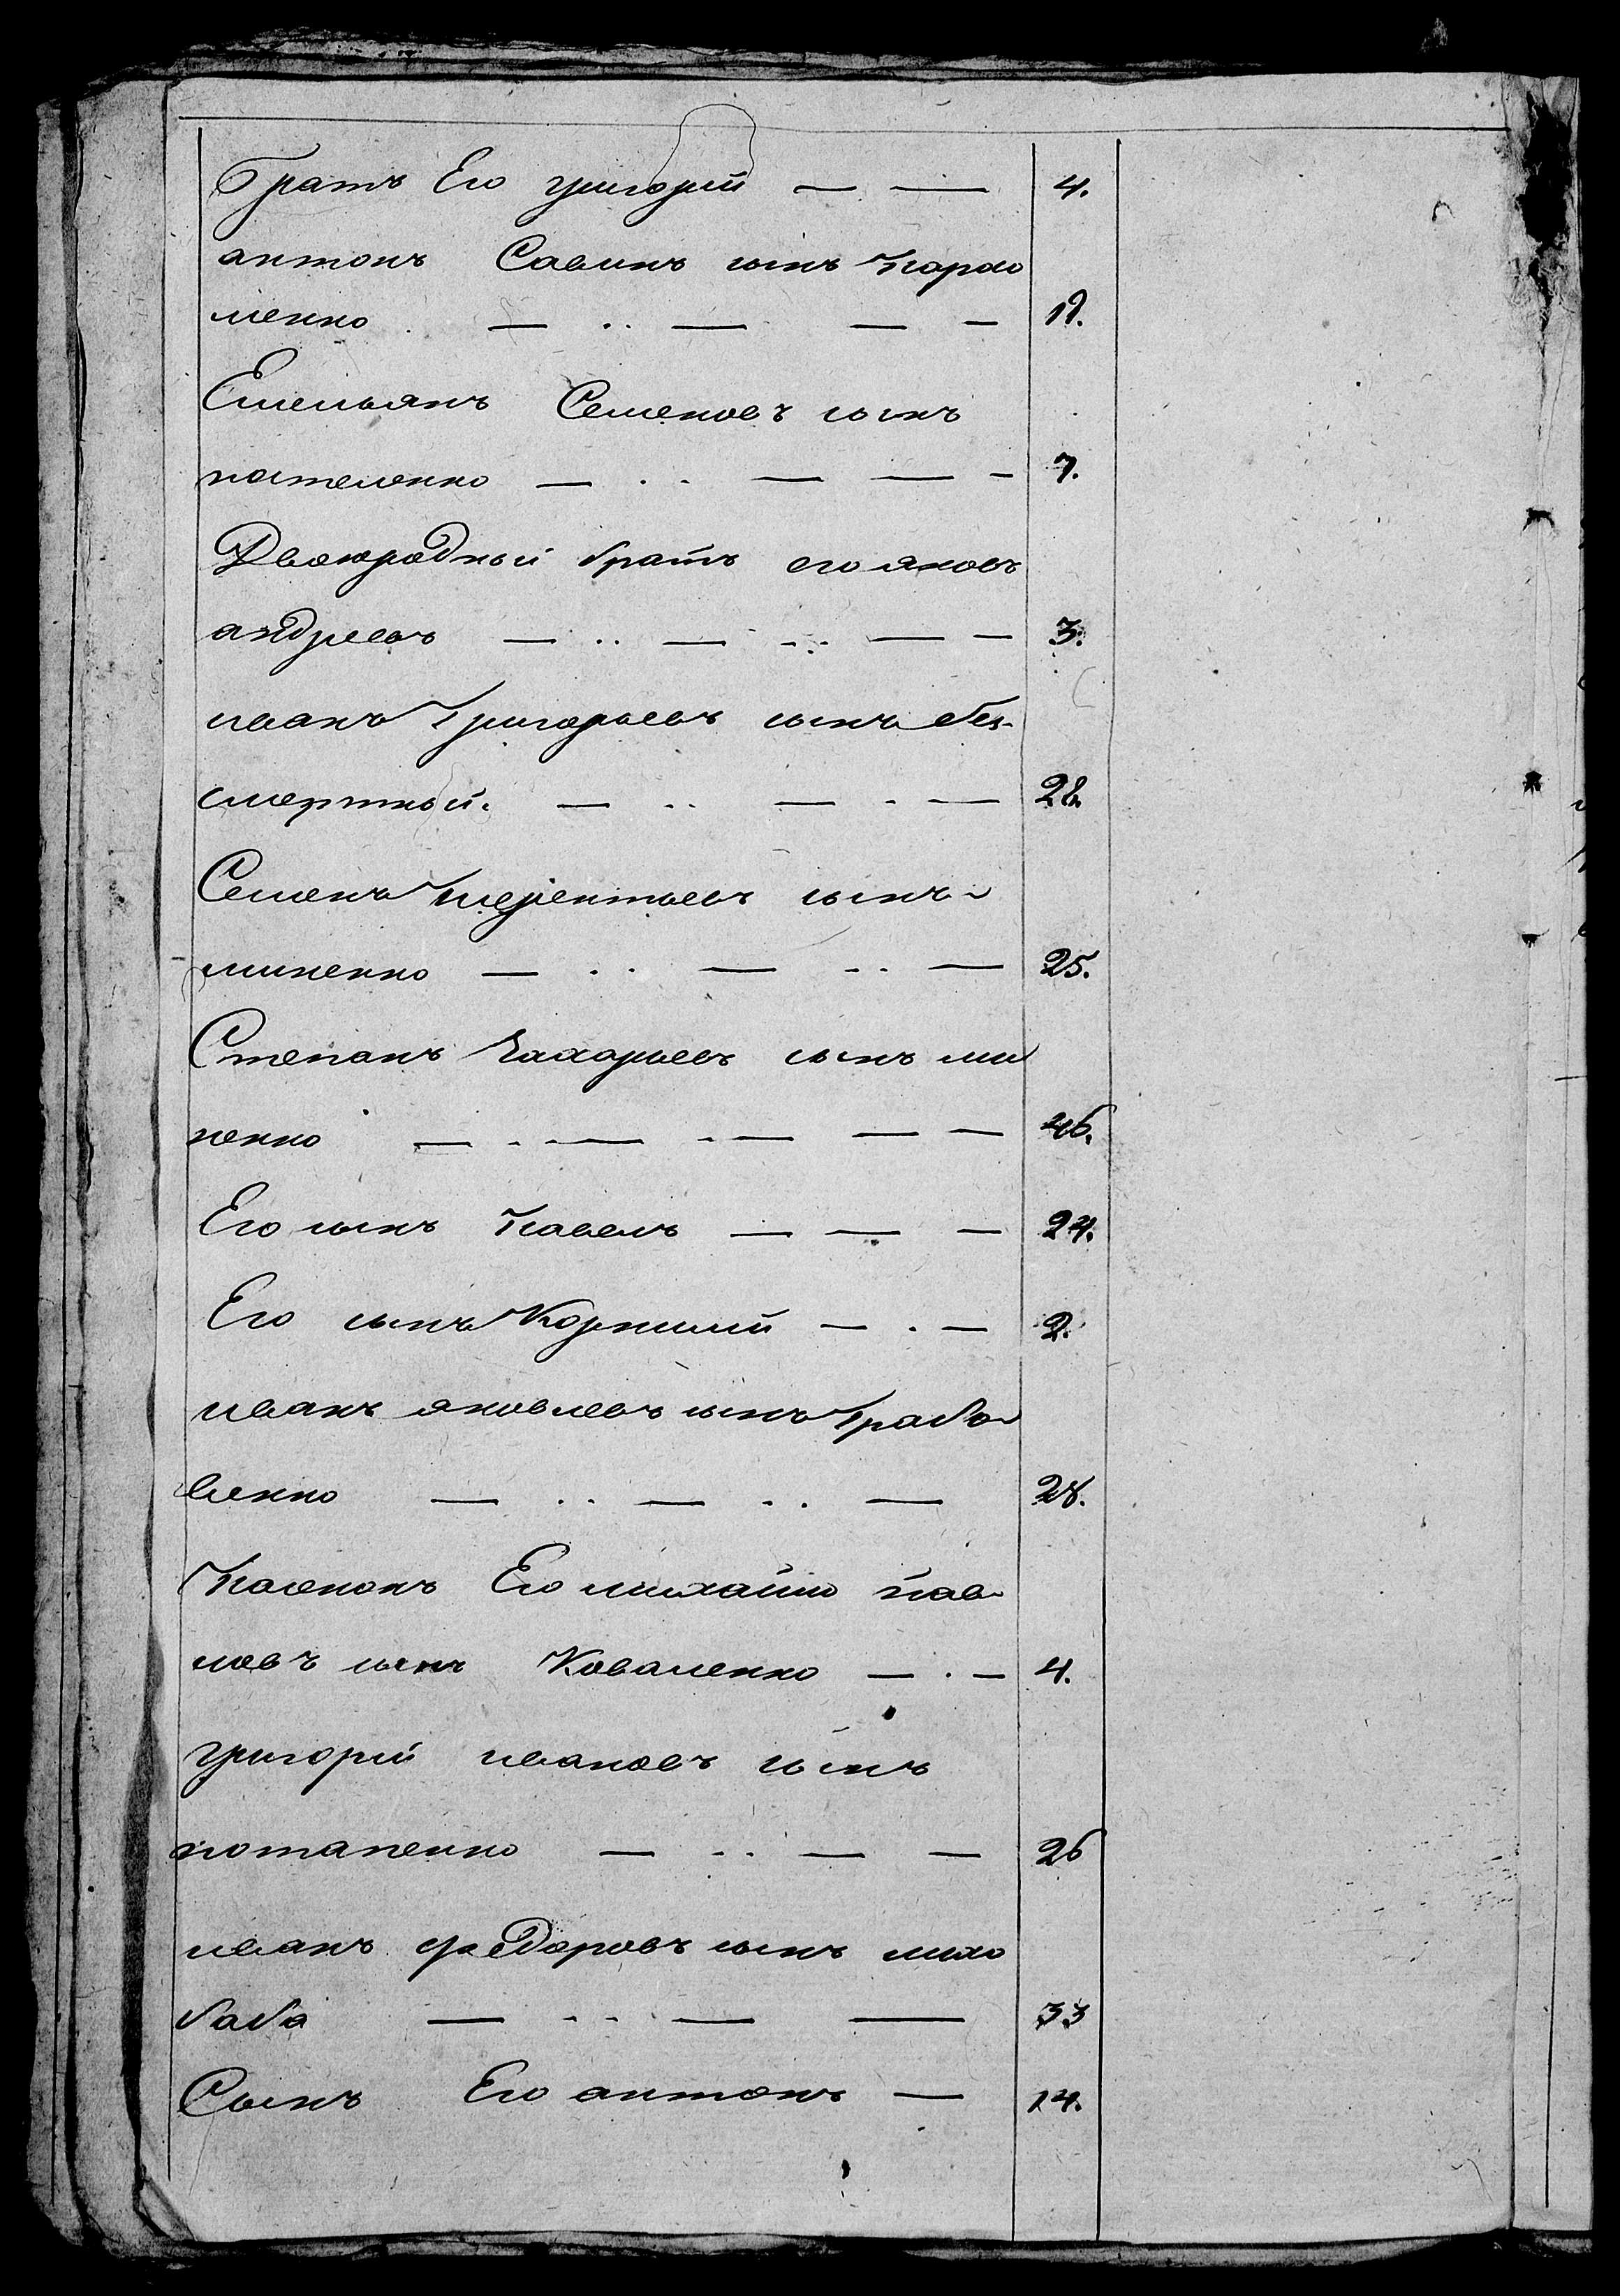 Братъ Его григорий — — 4.
антонъ Савинъ сынъ пархо
менко — .. — — — 17.
Емельянъ Семеновъ сынъ
пастеленко — .. — — — 7.
Двоюродный братъ его яковъ
андреевъ — .. — .. — — 3.
иванъ Григорьевъ сынъ без-
смертный. — .. — . — 28.
Семенъ терентьевъ сынъ
миненко — .. — .. — 25.
Степанъ Захарьевъ сынъ ми
ненко — . — . — — — 46.
Его сынъ павелъ — — — 24.
Его сынъ Корнилий — . — 2.
иванъ яковлевъ сынъ Грабо
венко — .. — .. — 28.
Пасенокъ Его михайло пав
ловъ сынъ Коваленко — . — 4.
григорий ивановъ сынъ
потапенко — .. — — 26
иванъ федоровъ сынъ лихо
баба — .. — — 33
Сынъ Его антонъ — 14.